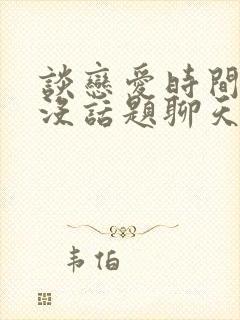 談戀愛時間
沒話題聊天
韦伯